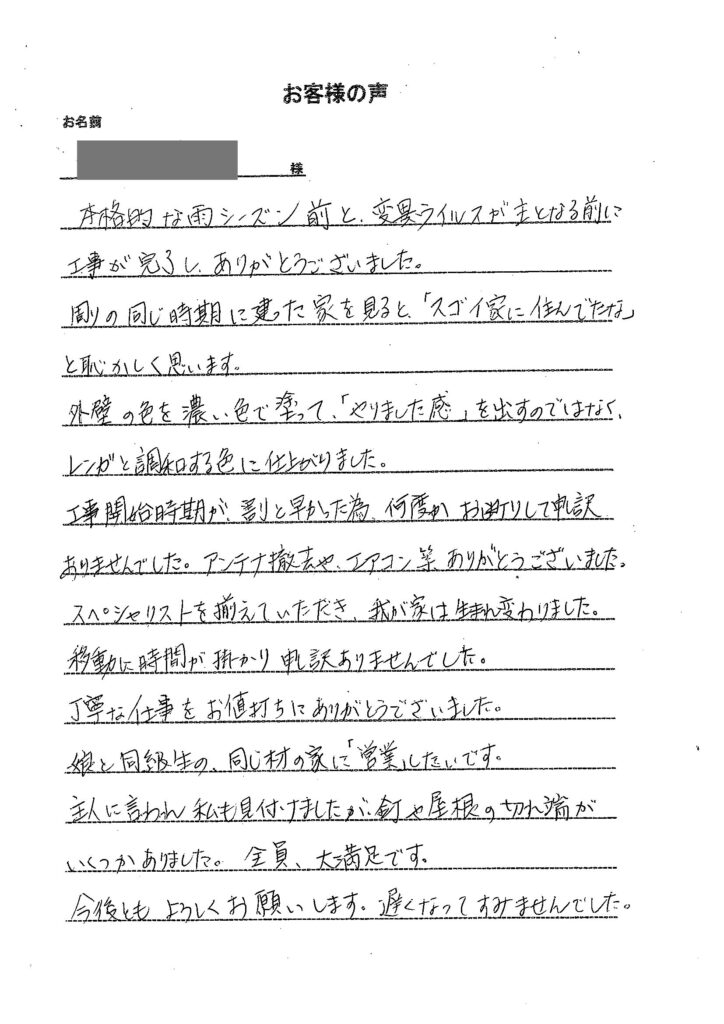 お客様の声
お名前
様
本格的な雨シーズン前と、変異ウイルスが主となる前に
工事が完了し、ありがとうございました。
周りの同じ時期に建った家を見ると、「スゴイ家に住んでたな」
と恥かしく思います。
外壁の色を濃い色で塗って、「やりました感」を出すのではなく、
レンガと調和する色に仕上がりました。
工事開始時期が、割と早かった為、何度か お断りして申訳
ありませんでした。アンテナ撤去や、エアコン等 ありがとうございました。
スペシャリストを揃えていただき、我が家は生まれ変わりました。
移動に時間が掛かり 申訳ありませんでした。
丁寧な仕事を お値打ちにありがとうございました。
娘と同級生の、同じ材の家に「営業」したいです。
主人に言われ 私も見付けましたが、釘や屋根の切れ端が
いくつかありました。 全員、大満足です。
今後とも よろしくお願いします。遅くなってすみませんでした。